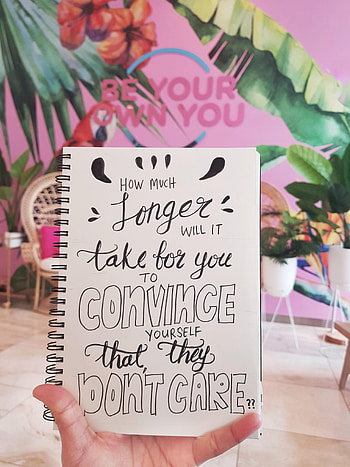 BE YOUR
OWN YOU
HOW MUCH
longer
WILL IT
take for you
TO
CONVINCE
YOURSELF
that, they
DON'T CARE??